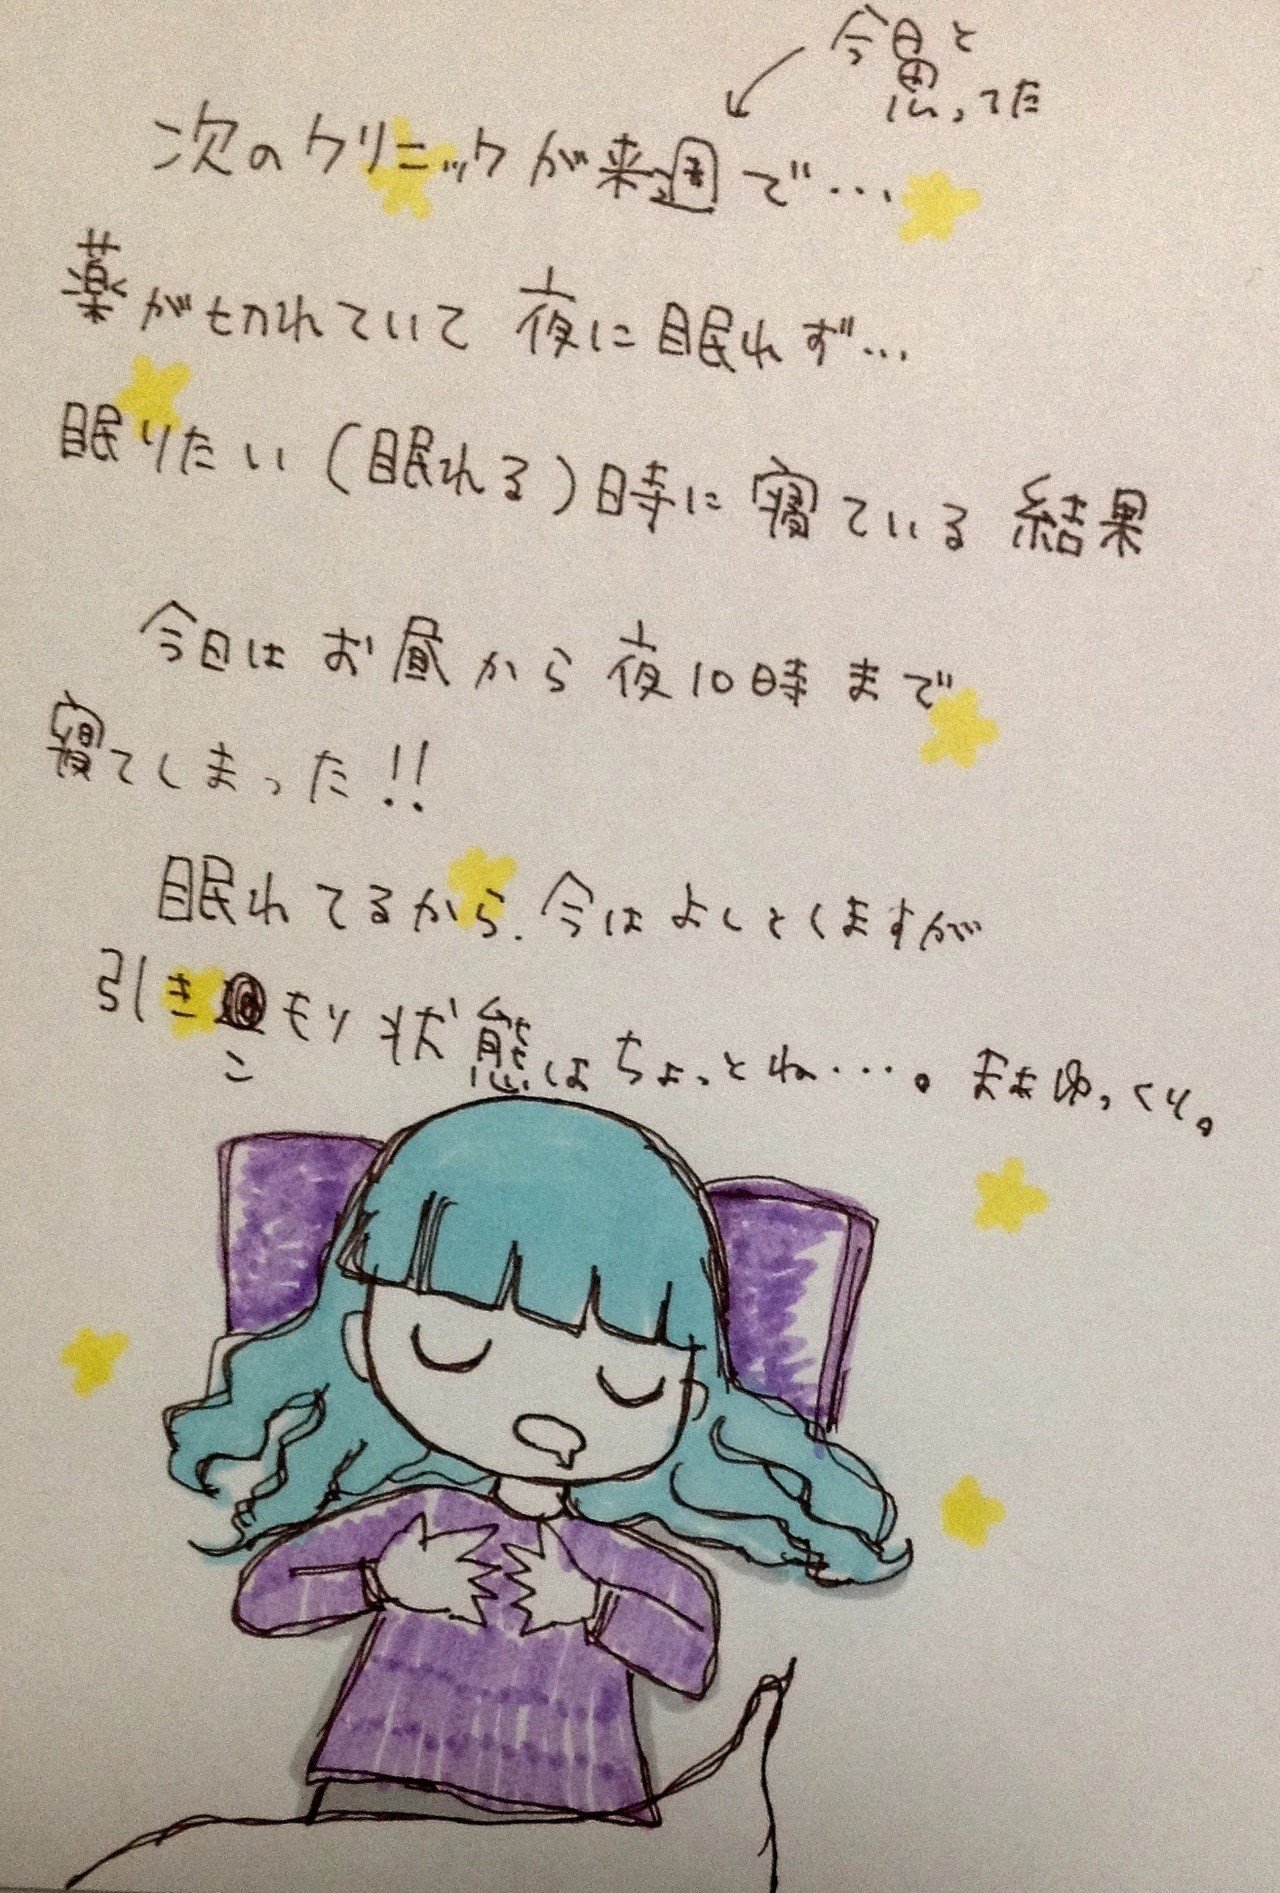 今日と
思ってた
次のクリニックが来週で…
薬が切れていて 夜に眠れず…
眠りたい(眠れる)時に寝ている結果
今日はお昼から夜10時まで
寝てしまった!!
眠れてるから.今はよしとくますが
引きこもり状態はちょっとね…。まぁゆっくり。